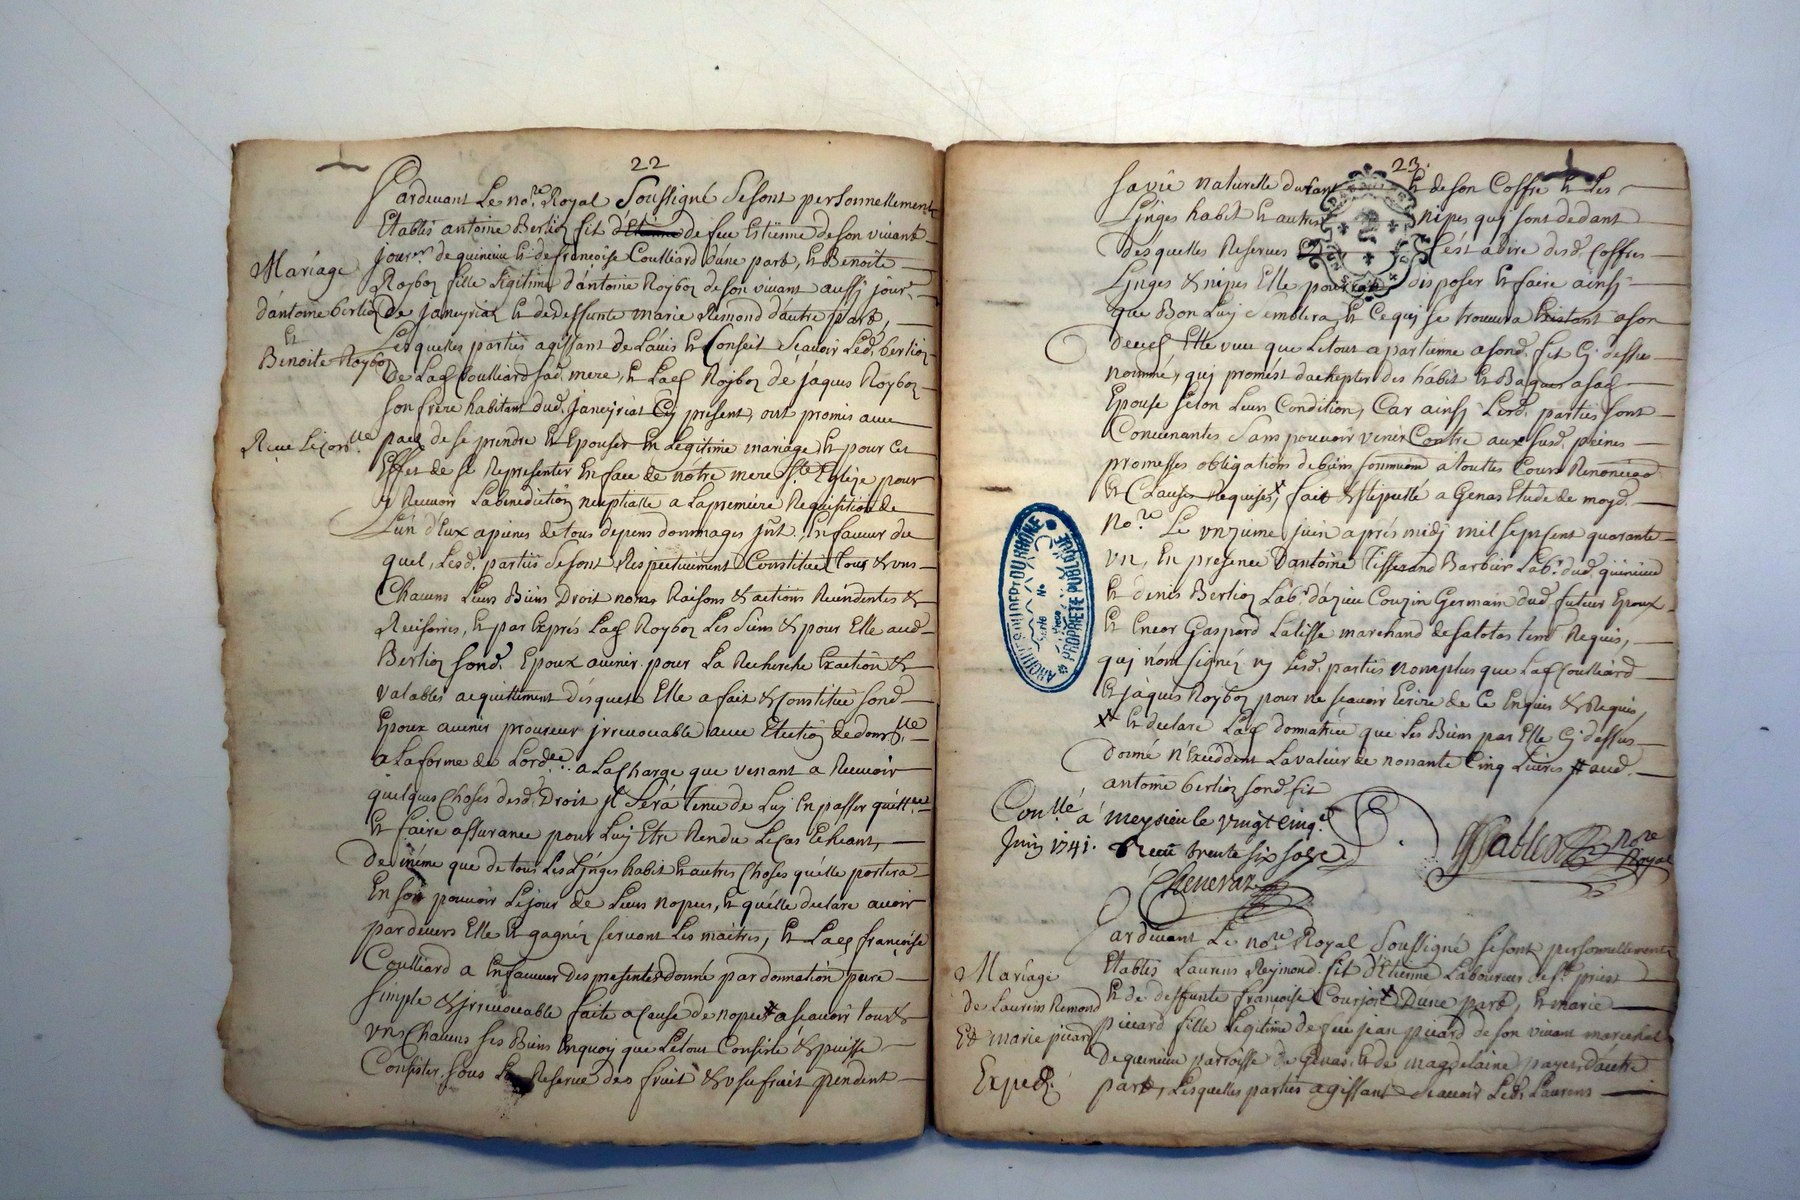 22
Pardevant Le no.re Royal Soussigné se sont personnellement
Etablis antoine Berlioz fit d'Etienne de feu Estienne de son vivant
jour.er de quineiu et de francoise Coulliard d'une part, et Benoite
Mariage
d'antoine berlioz
Et
Benoite Roybon
Roybon fille Legitime d'antoine Roybon de son vivant aussy jour.r
De janeyriat et de deffunte marie Remond d'autre part,
Lesquelles parties agissant de L'avis et Conseil Scavoir Led. berlioz
De Lad. Coulliard sad. mere, et Lad. Roybon de jaques Roybon
son frere habitant dud. janeyriat Cy présent, ont promis avec
pact de se prendre et Epouser En Legitime mariage et pour cet
Effet de se Representer En face de notre mere S.te Eglize pour
y Recevoir La benediction nuptialle a La premiere Requisition de
L'un d'Eux apeines de tous depens dommages jnt. En faveur du
quel, Lesd. parties se sont Respectivement Constitué tous & uns
Chacuns Leurs Biens Droit noms Raisons & actions Recindentes &
Recisoires, et par Exprés Lad. Roybon Les siens & pour Elle aud.
Berlioz sond. Epoux avenir pour La Recherche Exaction &
valables acquittement désquels Elle a fait & Constitué sond.
Epoux avenir procureur jrrevocable avec Election de dom.lle
a La forme de L'ord.ce a La Charge que venant a Recevoir
quelques Choses desd. Droit jl Sera tenu de Luy En passer quitt.ce
et faire assurance pour Luy Etre Rendu Le cas Echeant,
De même que de tous Les Linges habit et autres Choses qu'elle portera
En son pouvoir Le jour de Leurs nopces, et qu'elle declare avoir
pardevers Elle et gagnéz servant Les maitres, et Lad. francoise
Coulliard a En faveur des presentes donné par donnation pure
simple & jrrevocable faite a Cause de nopces a scavoir tous &
uns Chacuns ses Biens En quoy que Le tout Consiste & puisse
Consister, sous La Reserve des fruit & usufruit pendent
23.
sa vie naturelle durant et de son Coffre et Les
Linges habit et autres nipes quy sont dedant
Desquelles Reserves C'est a dire desd. Coffres
Linges & nipes Elle pourra disposer et faire ainsy
que Bon Luy semblera, et Ce quy se trouvera Existant a son
deces Elle veut que Le tout apartienne a sond. fit Cy dessus
nommé, quy promest d'achepter des habit et Bagues a sad.
Epouse selon Leurs Condition, Car ainsy Lesd. parties sont
Convenantes Sans pouvoir venir Contre aux susd. peines
promesses obligations de biens soummission a touttes Cours Renonciaõn
et Clauses Requises, fait & stipullé a Genas Etude de moyd.
No.re Le unzieme juin aprés midy mil sept sent quarante
un, En presence D'antoine Tisserand Barbier Lab.r dud. quineiue
et denis Berlioz Lab.r d'azieu Couzin Germain dud. futeur Epoux
et Encor Gaspard Latisse marchand de satolas tem.s Requis,
quy n'ont signéz ny Lesd. parties nomplus que Lad. Coulliard
et jaques Roybon pour ne scavoir Ecrire de Ce Enquis & Requis,
x et declare Lad. donnatrice que Les Biens par Elle Cy dessus
donné n'Exceddent La valleur de nonante Cinq Livres aud.
antoine berlioz sond. fit
Con.llé à meysieu le vingt cinq.e
Juin 1741. Receu trente six sols
Chenevaz
Sablon No.re Royal
Pardevant Le no.re Royal Soussigné se sont personnellement
Mariage
De Laurens Remond
Et marie picard
Exped.
Etablis Laurens Reymond fit d'Etienne Laboureur de S.t priest
et de deffunte francoise Courjon D'une part, et marie
picard fille Legitime de feu jean picard de son vivant marechal
De quineiue parroisse de Genas, et de magdelaine payet d'autre
part, Lesquelles parties agissant Scavoir Led. Laurens
ARCHIVES DU DEPT DU RHÔNE
PROPRIÉTÉ PUBLIQUE